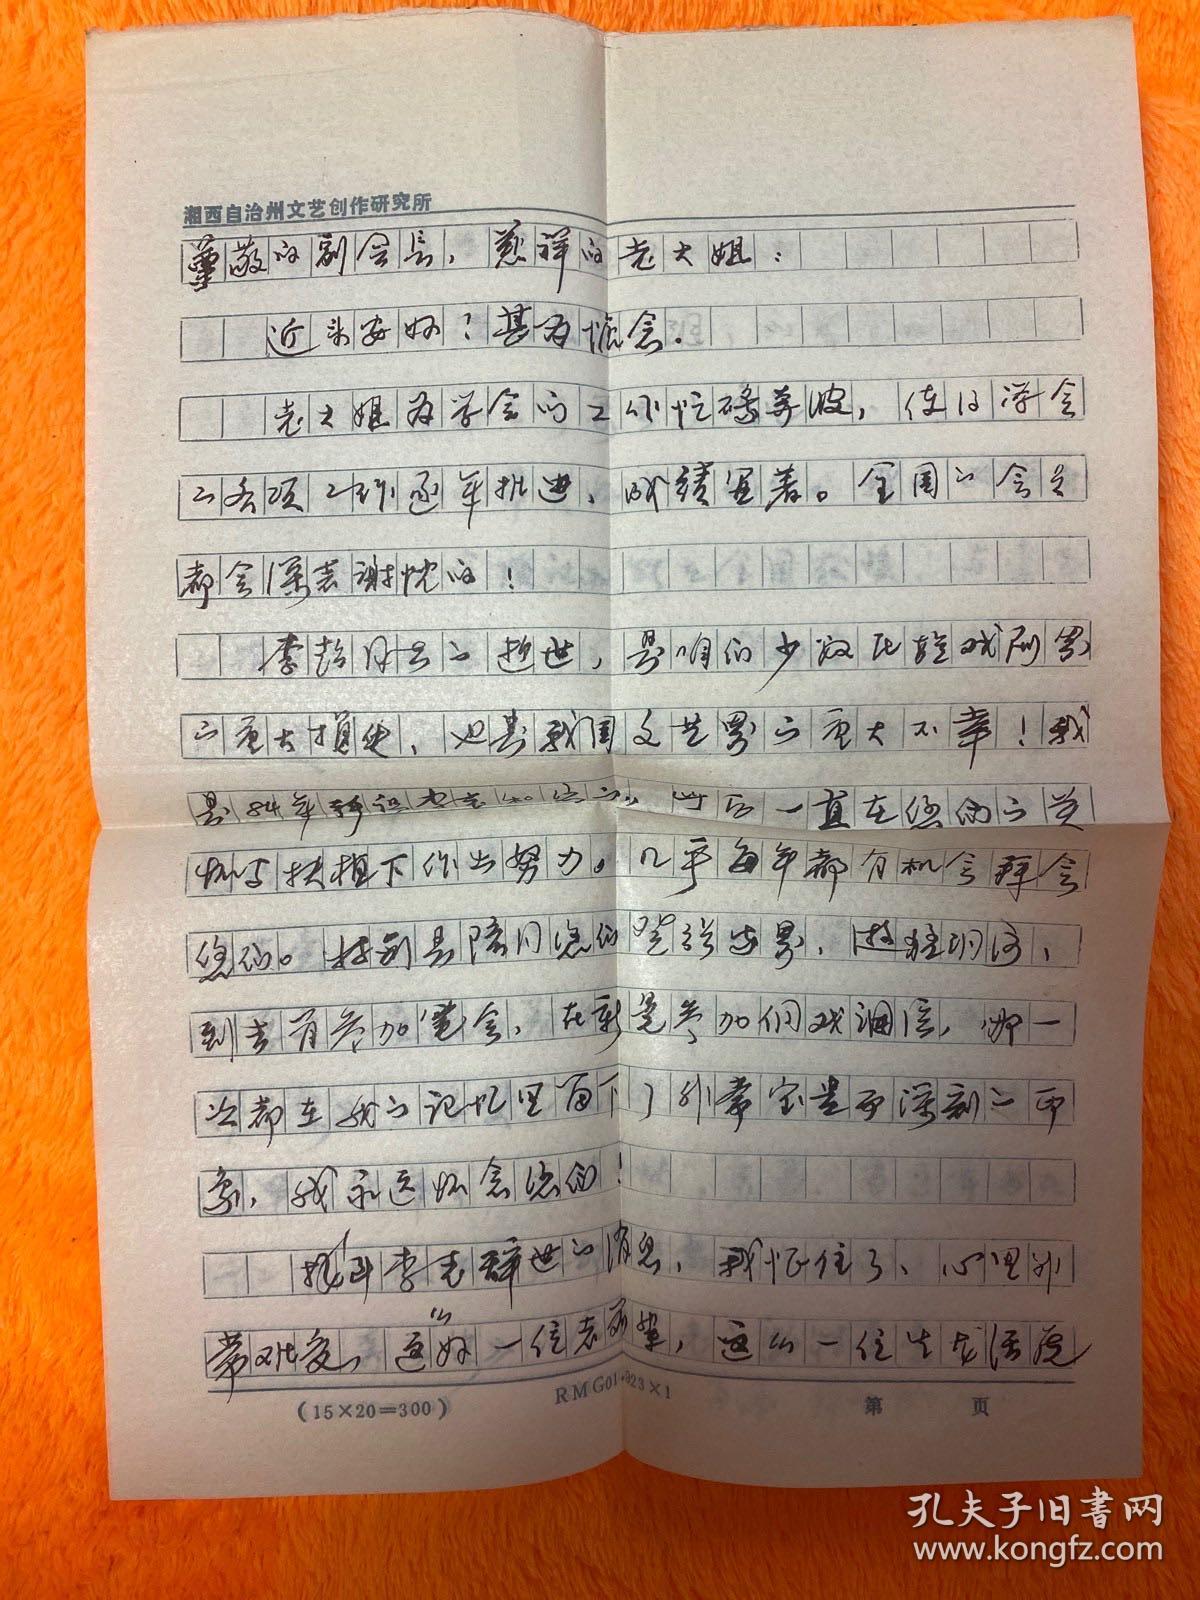 湘西自治州文艺创作研究所
尊敬的副会长，慈祥的老大姐：
近来安好？甚为惦念．
老大姐为学会的工作忙碌奔波，使得学会
的各项工作逐年推进，成绩显著。全国的会员
都会深表谢忱的！
李超同志的逝世，是咱们少数民族戏剧界
的重大损失，也是我国文艺界的重大不幸！我
是84年 一直在您俩的关
怀与扶植下作出努力。几乎每年都有机会拜会
您俩。特别是陪同您俩 张家界，游猛洞河，
到吉首参加笔会，在新晃参加侗戏调演，哪一
次都在我的记忆里留下了非常宝贵而深刻的印
象，我永远怀念您俩！
接到李老辞世的消息，我怔住了，心里非
常难受，这么好一位老前辈，这么一位生龙活虎
(15×20=300)
RMG01·923×1
第 页
孔夫子旧书网
www.kongfz.com